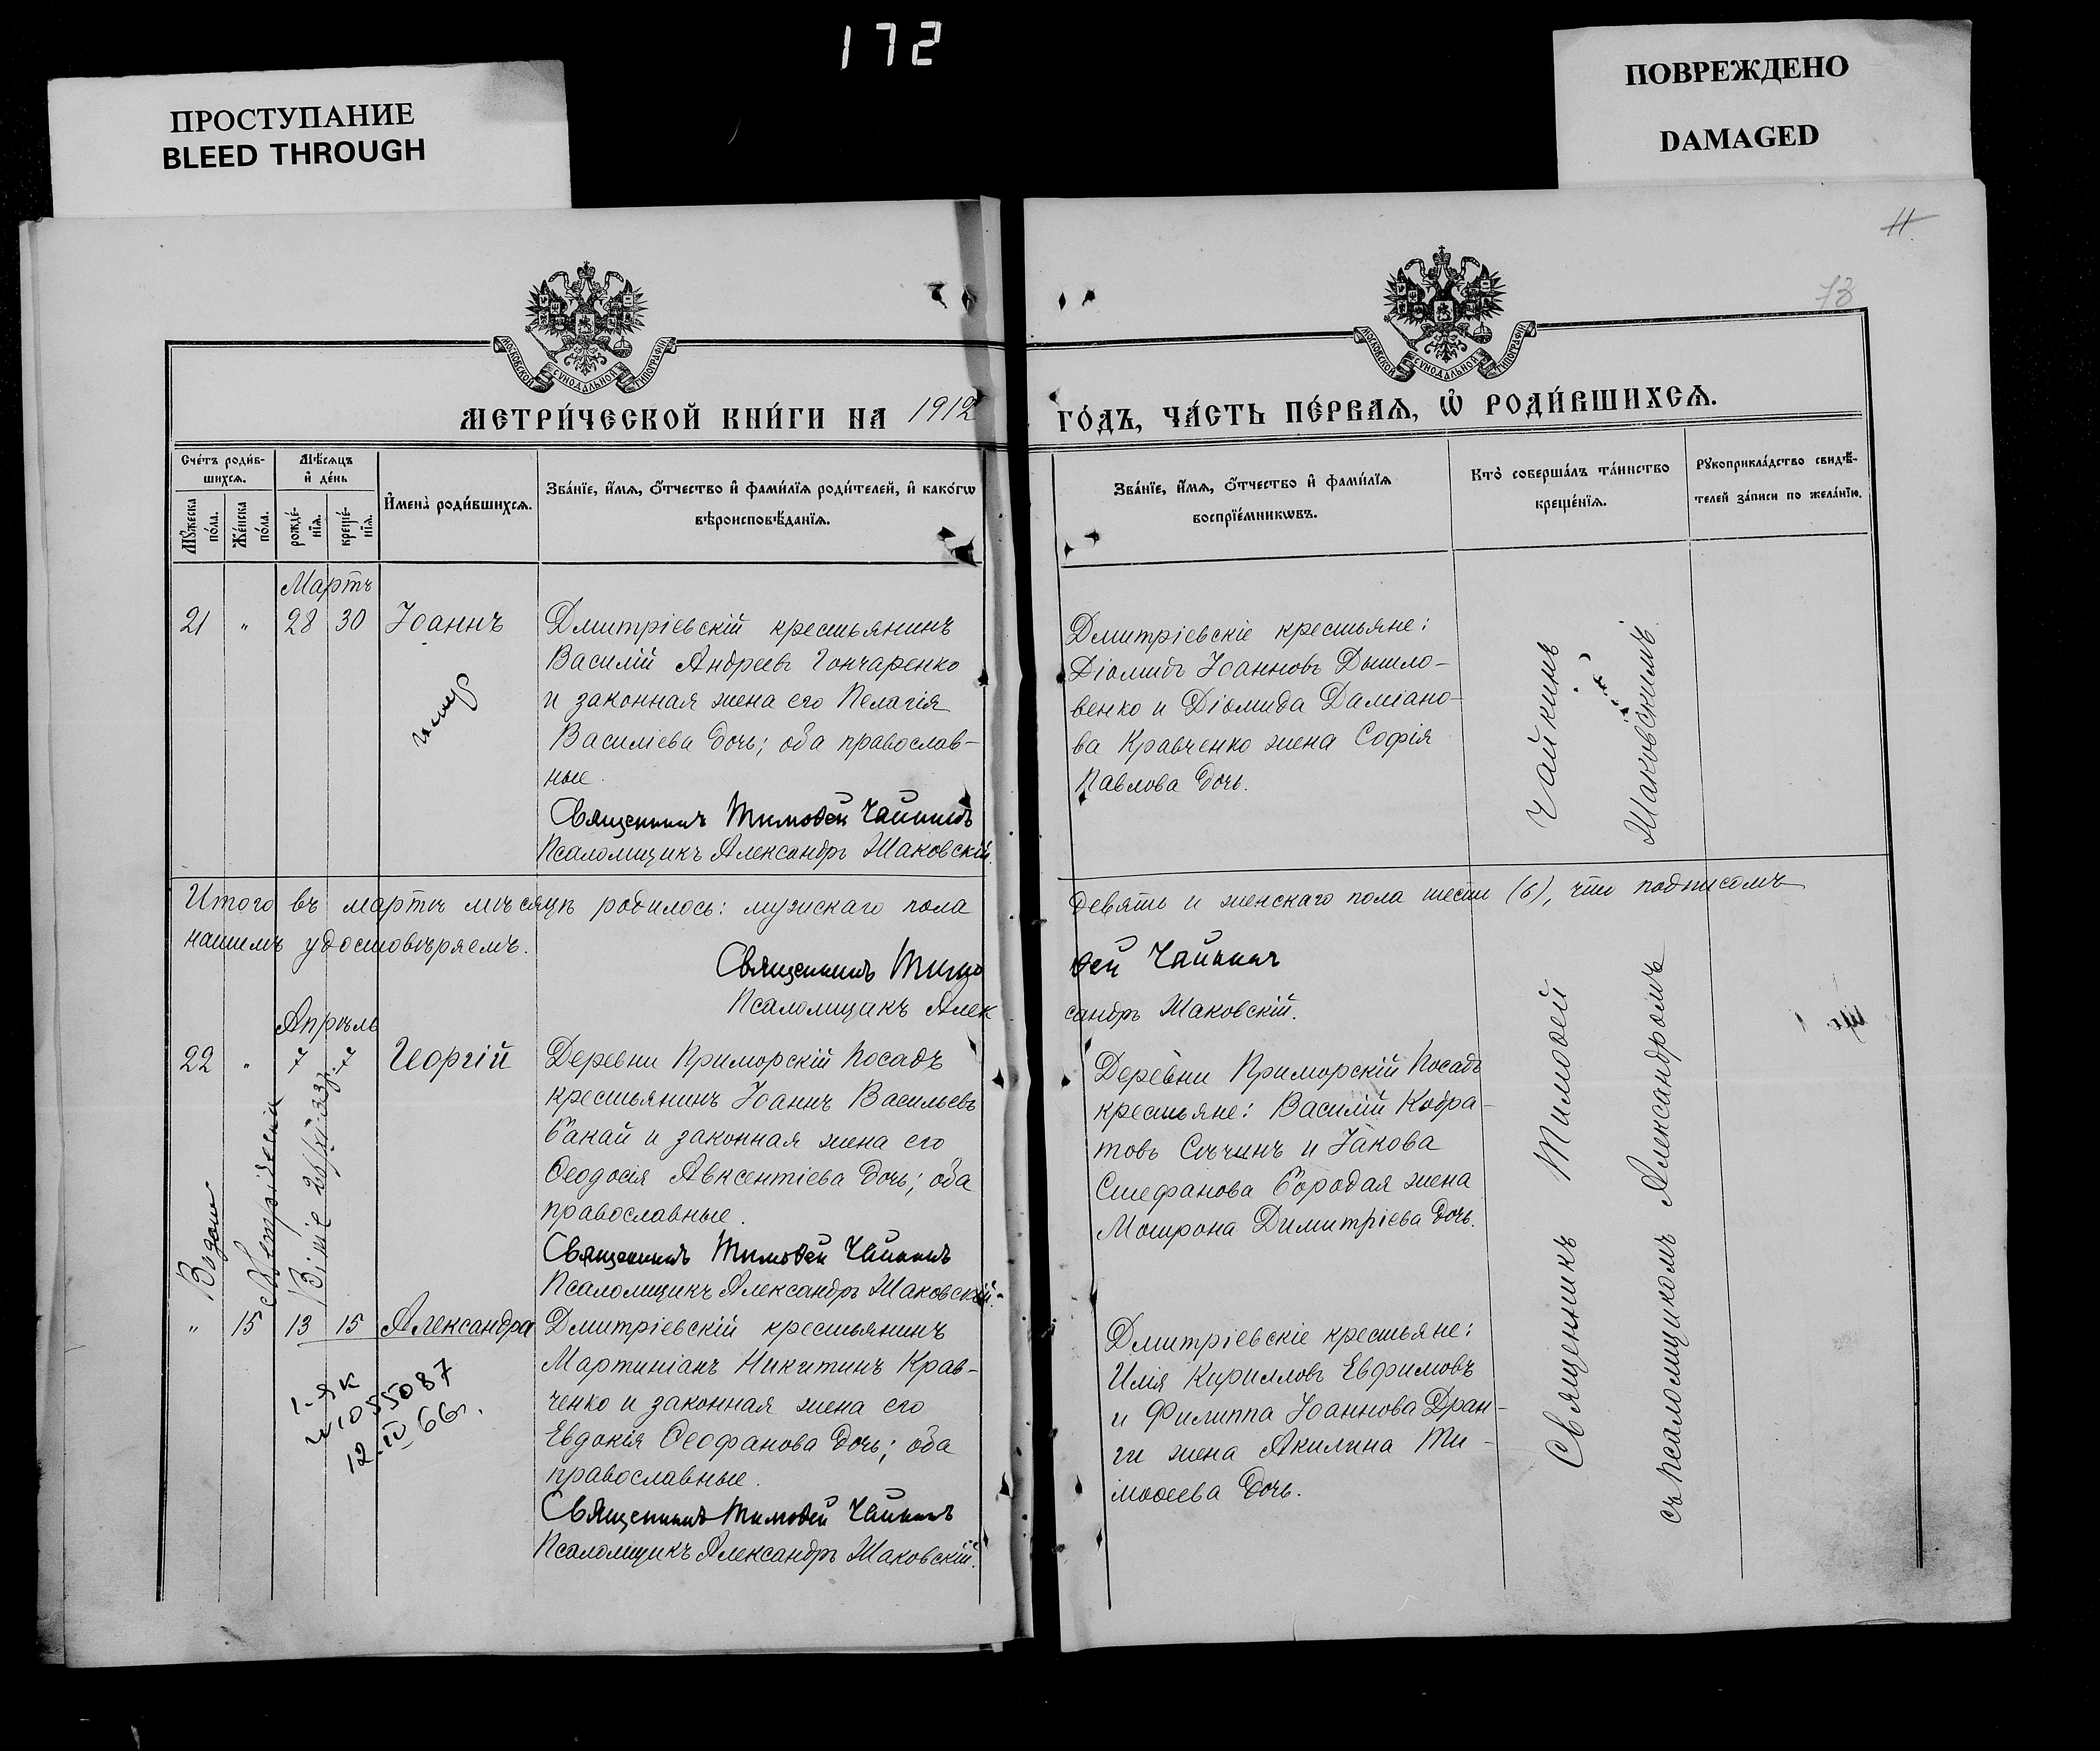 172
ПРОСТУПАНИЕ
BLEED THROUGH
ПОВРЕЖДЕНО
DAMAGED
11.
73
МОСКОВСКОЙ СѴНОДАЛЬНОЙ ТИПОГРАФІИ
МОСКОВСКОЙ СѴНОДАЛЬНОЙ ТИПОГРАФІИ
МЕТРИ́ЧЕСКОЙ КНИ́ГИ НА 1912
ГО́ДЪ, ЧА́СТЬ ПЕ́РВАѦ, Ѽ РОДИ́ВШИХСѦ.
Сче́тъ роди́в-
шихсѧ.
Мꙋ́жеска
по́ла.
Же́нска
по́ла.
Мѣ́сѧцъ
и҆ де́нь
рожде́-
нїѧ.
креще́-
нїѧ.
И҆мена̀ роди́вшихсѧ.
Зва́нїе, и҆́мѧ, ѻ҆́тчество и҆ фами́лїѧ роди́телей, и҆ како́гѡ
вѣроисповѣ́данїѧ.
Зва́нїе, и҆́мѧ, ѻ҆́тчество и҆ фами́лїѧ
воспрїе́мникѡвъ.
Кто̀ соверша́лъ та́инство
креще́нїѧ.
Рꙋкоприкла́дство свидѣ́-
телей за́писи по жела́нїю.
Мартъ
21 " 28 30 Іоаннъ
Дмитріевскій крестьянинъ
Василій Андреевъ Гончаренко
и законная жена его Пелагія
Василіева дочь; оба православ-
ные.
Священникъ Тимоѳей Чайкинъ
Псаломщикъ Александръ Маковскій.
Дмитріевскіе крестьяне:
Діомидъ Іоанновъ Дышло-
венко и Діомида Даміано-
ва Кравченко жена Софія
Павлова дочь.
Чайкинъ
Маковскимъ.
Итого въ мартѣ мѣсяцѣ родилось: мужскаго пола
девять и женскаго пола шести (6), что подписомъ
нашимъ удостовѣряемъ.
Священникъ Тимо
ѳей Чайкинъ
Псаломщикъ Алек
сандръ Маковскій.
Апрѣль
22 " 7 7 Георгій
Деревни Приморскій Посадъ
крестьянинъ Іоаннъ Васильевъ
Бакай и законная жена его
Ѳеодосія Авксентіева дочь; оба
православные.
Священникъ Тимоѳей Чайкинъ
Псаломщикъ Александръ Маковскій.
Деревни Приморскій Посадъ
крестьяне: Василій Кодра-
товъ Сѣчинъ и Іакова
Стефанова Бородая жена
Мотрона Димитріева дочь.
" 15 13 15 Александра
Дмитріевскій крестьянинъ
Мартиніанъ Никитинъ Крав-
ченко и законная жена его
Евдокія Ѳеофанова дочь; оба
православные.
Священникъ Тимоѳей Чайкинъ
Псаломщикъ Александръ Маковскій.
Дмитріевскіе крестьяне:
Илія Кирилловъ Евфимовъ
и Филиппа Іоаннова Дран-
ги жена Акилина Ти-
моѳеева дочь.
Священникъ Тимоѳей
съ псаломщикомъ Александромъ
I-ЯК
№1055087
12.IV 66г.